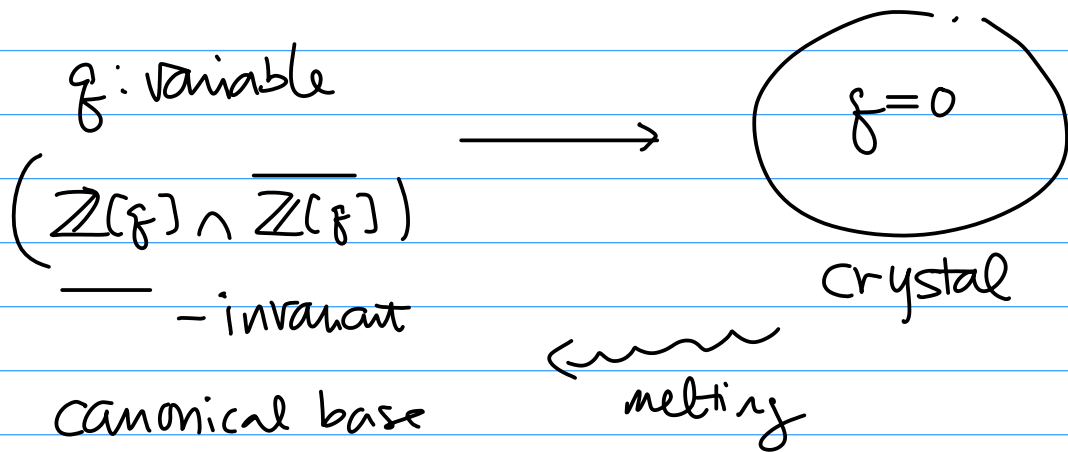 q : variable
q = 0
( ℤ[q] ∩ \overline{ℤ[q]} )
crystal
‾ - invariant
melting
canonical base